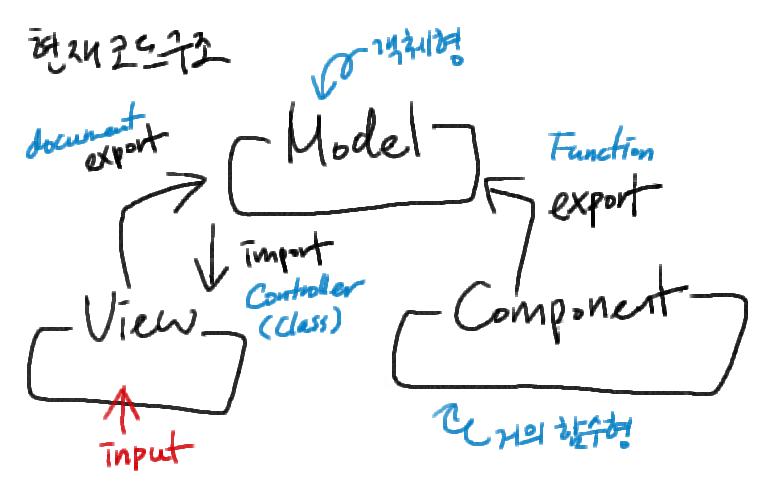 현재 코드구조
객체형
document
export
Model
Function
export
import
Controller
(Class)
View
Component
input
거의 함수형